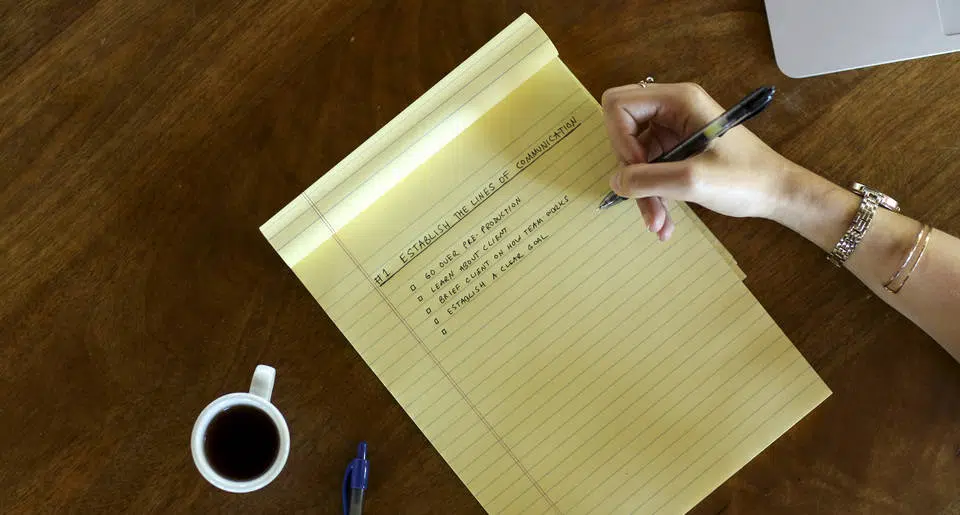 #1 ESTABLISH THE LINES OF COMMUNICATION
GO OVER PRE-PRODUCTION
LEARN ABOUT CLIENT
BRIEF CLIENT ON HOW TEAM WORKS
ESTABLISH A CLEAR GOAL